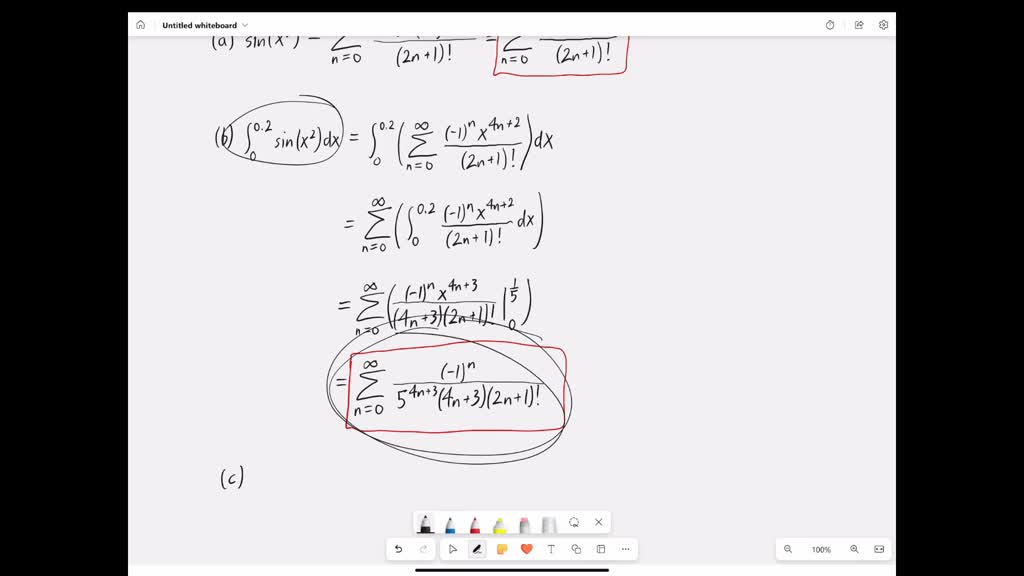 Untitled whiteboard
(a) sin(x²) = ∑ n=0 (2n+1)! = ∑ n=0 (2n+1)!
(b) ∫₀^0.2 sin(x²)dx = ∫₀^0.2 (∑_{n=0}^∞ (-1)^n x^{4n+2} / (2n+1)!) dx
= ∑_{n=0}^∞ (∫₀^0.2 (-1)^n x^{4n+2} / (2n+1)! dx)
= ∑_{n=0}^∞ ((-1)^n x^{4n+3} / (4n+3)(2n+1)! |₀^{1/5})
= ∑_{n=0}^∞ (-1)^n / 5^{4n+3}(4n+3)(2n+1)!
(c)
T
100%